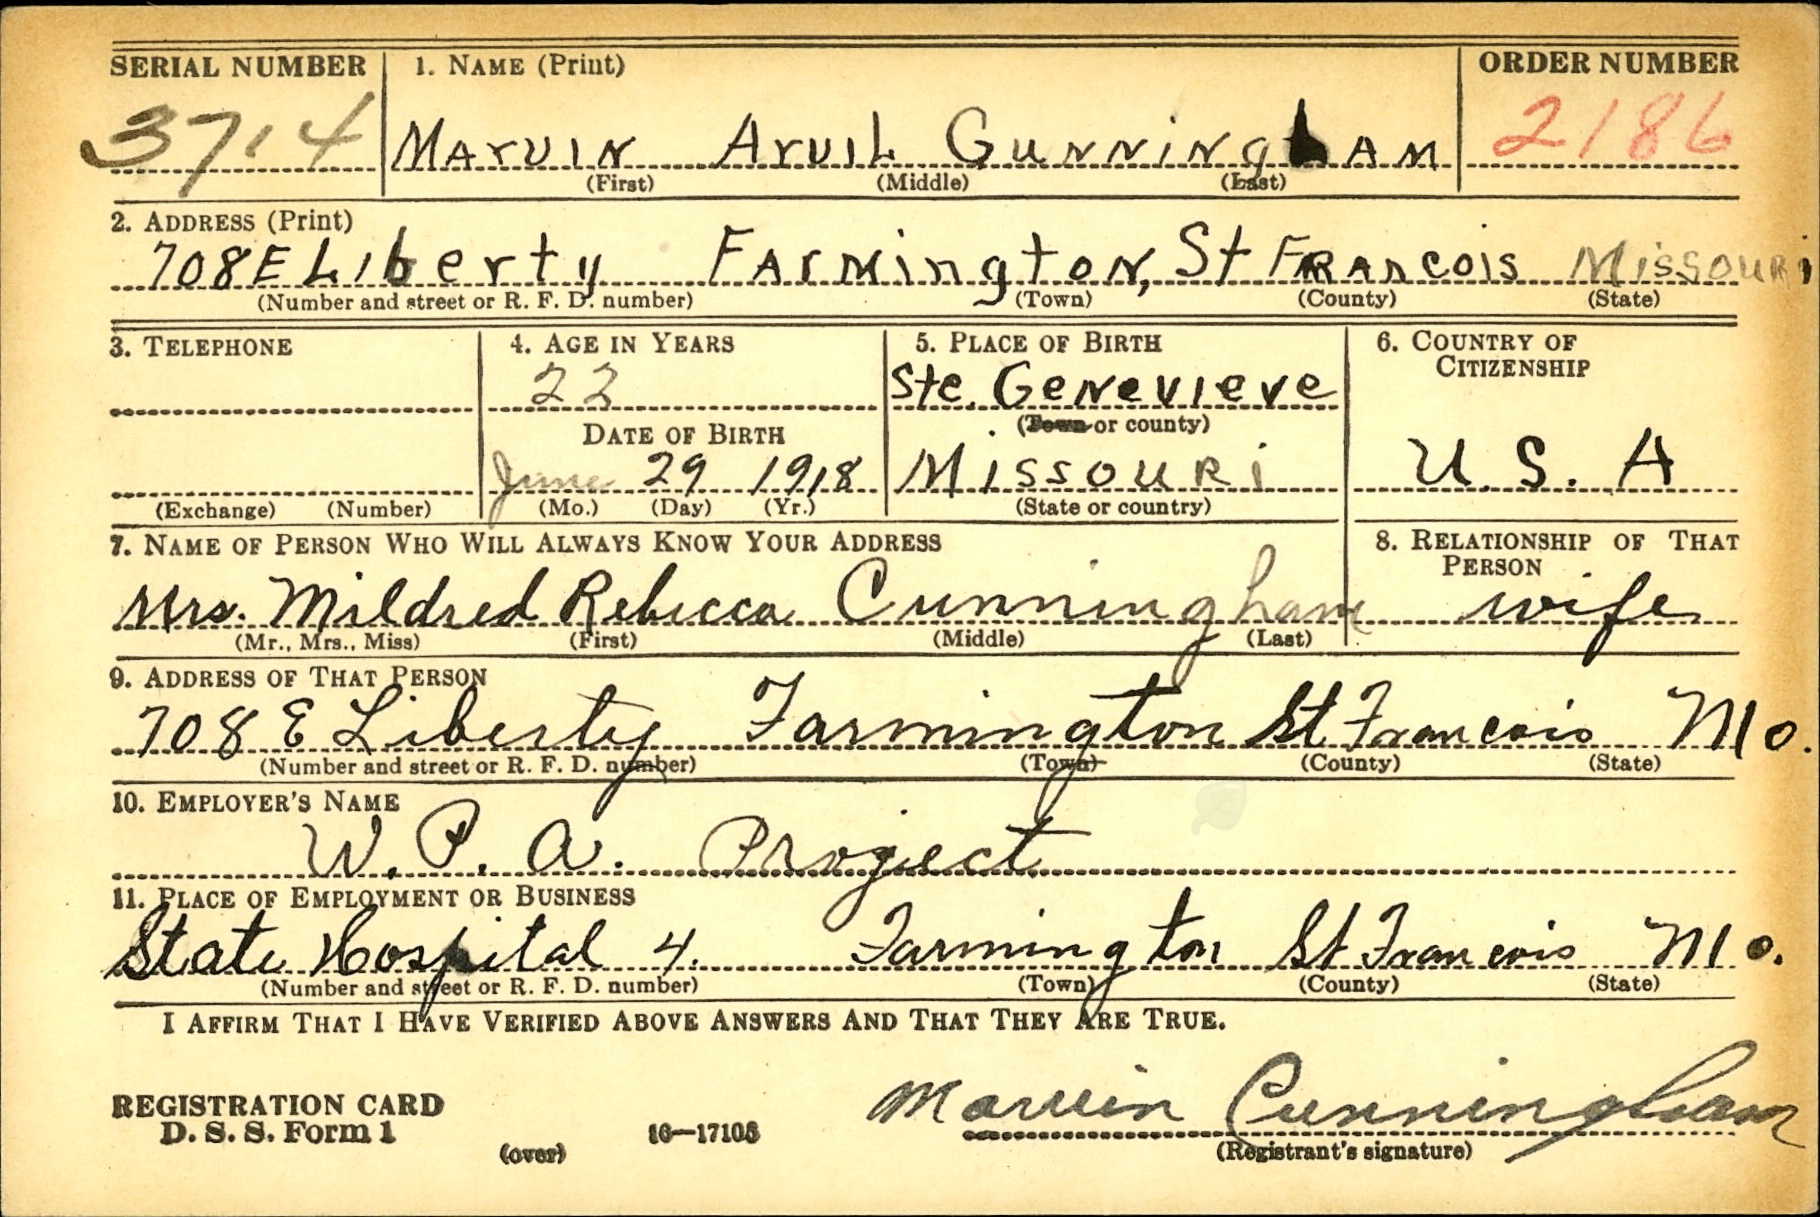 SERIAL NUMBER 1. NAME (Print) ORDER NUMBER
3714 MARVIN ARVIL CUNNINGHAM 2186
(First) (Middle) (Last)
2. ADDRESS (Print)
708 E Liberty FARMington, St FRANcois MissouRi
(Number and street or R. F. D. number) (Town) (County) (State)
3. TELEPHONE 4. AGE IN YEARS 5. PLACE OF BIRTH 6. COUNTRY OF CITIZENSHIP
22 Ste. GeNevieve
DATE OF BIRTH (Town or county)
June 29 1918 MissouRi U. S. A
(Exchange) (Number) (Mo.) (Day) (Yr.) (State or country)
7. NAME OF PERSON WHO WILL ALWAYS KNOW YOUR ADDRESS 8. RELATIONSHIP OF THAT PERSON
Mrs. Mildred Rebecca Cunningham wife
(Mr., Mrs., Miss) (First) (Middle) (Last)
9. ADDRESS OF THAT PERSON
708 E Liberty Farmington St Francois Mo.
(Number and street or R. F. D. number) (Town) (County) (State)
10. EMPLOYER'S NAME
W. P. A. Project
11. PLACE OF EMPLOYMENT OR BUSINESS
State Hospital 4. Farmington St Francois Mo.
(Number and street or R. F. D. number) (Town) (County) (State)
I AFFIRM THAT I HAVE VERIFIED ABOVE ANSWERS AND THAT THEY ARE TRUE.
REGISTRATION CARD Marvin Cunningham
D. S. S. Form 1 (over) 16—17105 (Registrant's signature)